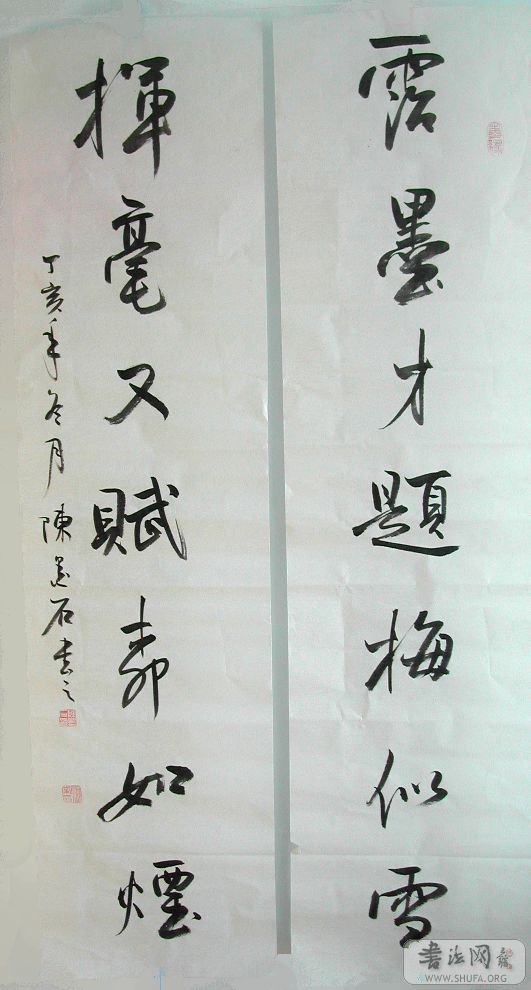 霑墨才題梅似雪
揮毫又賦柳如煙
丁亥年冬月 陳石書之
書法网
WWW.SHUFA.ORG